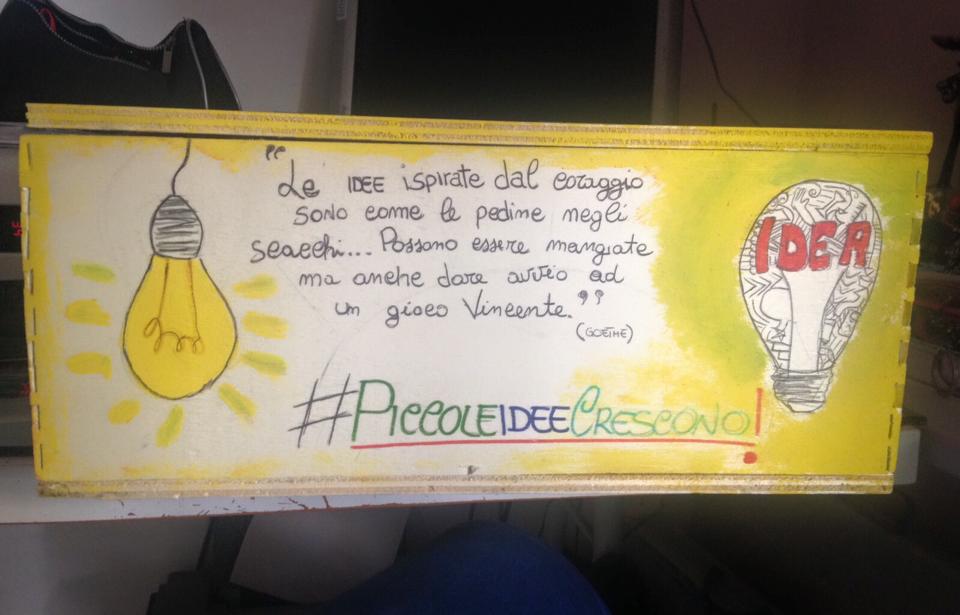 "Le IDEE ispirate dal coraggio
sono come le pedine negli
scacchi... Possono essere mangiate
ma anche dare avvio ad
un gioco Vincente."
(GOETHE)
#PICCOLEIDEECRESCONO!
IDEA